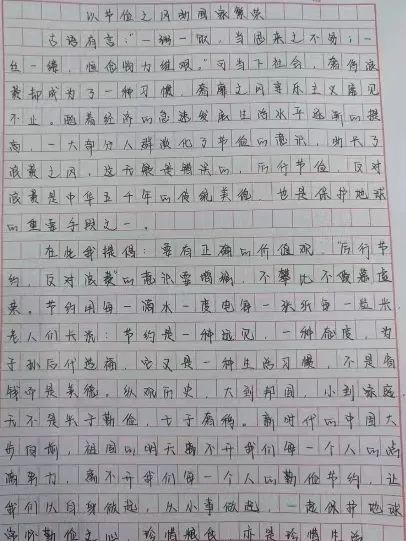 以节俭之风助国家繁荣
古语有言：“一粥一饭，当思来之不易；一
丝一缕，恒念物力维艰。”可当下社会，奢侈浪
费却成为了一种习惯，奢靡之风享乐主义屡见
不止。随着经济的急速发展生活水平逐渐的提
高，一大部分人群淡化了节俭的意识，助长了
浪费之风，这无疑是错误的，厉行节俭，反对
浪费是中华五千年的传统美德，也是保护地球
的重要手段之一。
在此我提倡：要有正确的价值观，“厉行节
约，反对浪费”的意识要增强，不攀比不做慕虚
荣。节约用每一滴水一度电每一张纸每一粒米，
老人们长说：节约是一种远见，一种态度，为
子孙后代造福，它又是一种生活习惯，不是省
钱而是美德。纵观历史，大到邦国，小到家庭，
无不是兴于勤俭，亡于奢靡。新时代的中国大
步向前，祖国的明天离不开我们每一个人的
努力，离不开我们每一个人的勤俭节约，让
我们从自身做起，从小事做起，一起保护地球
常怀勤俭之心，珍惜粮食，亦是珍惜生活